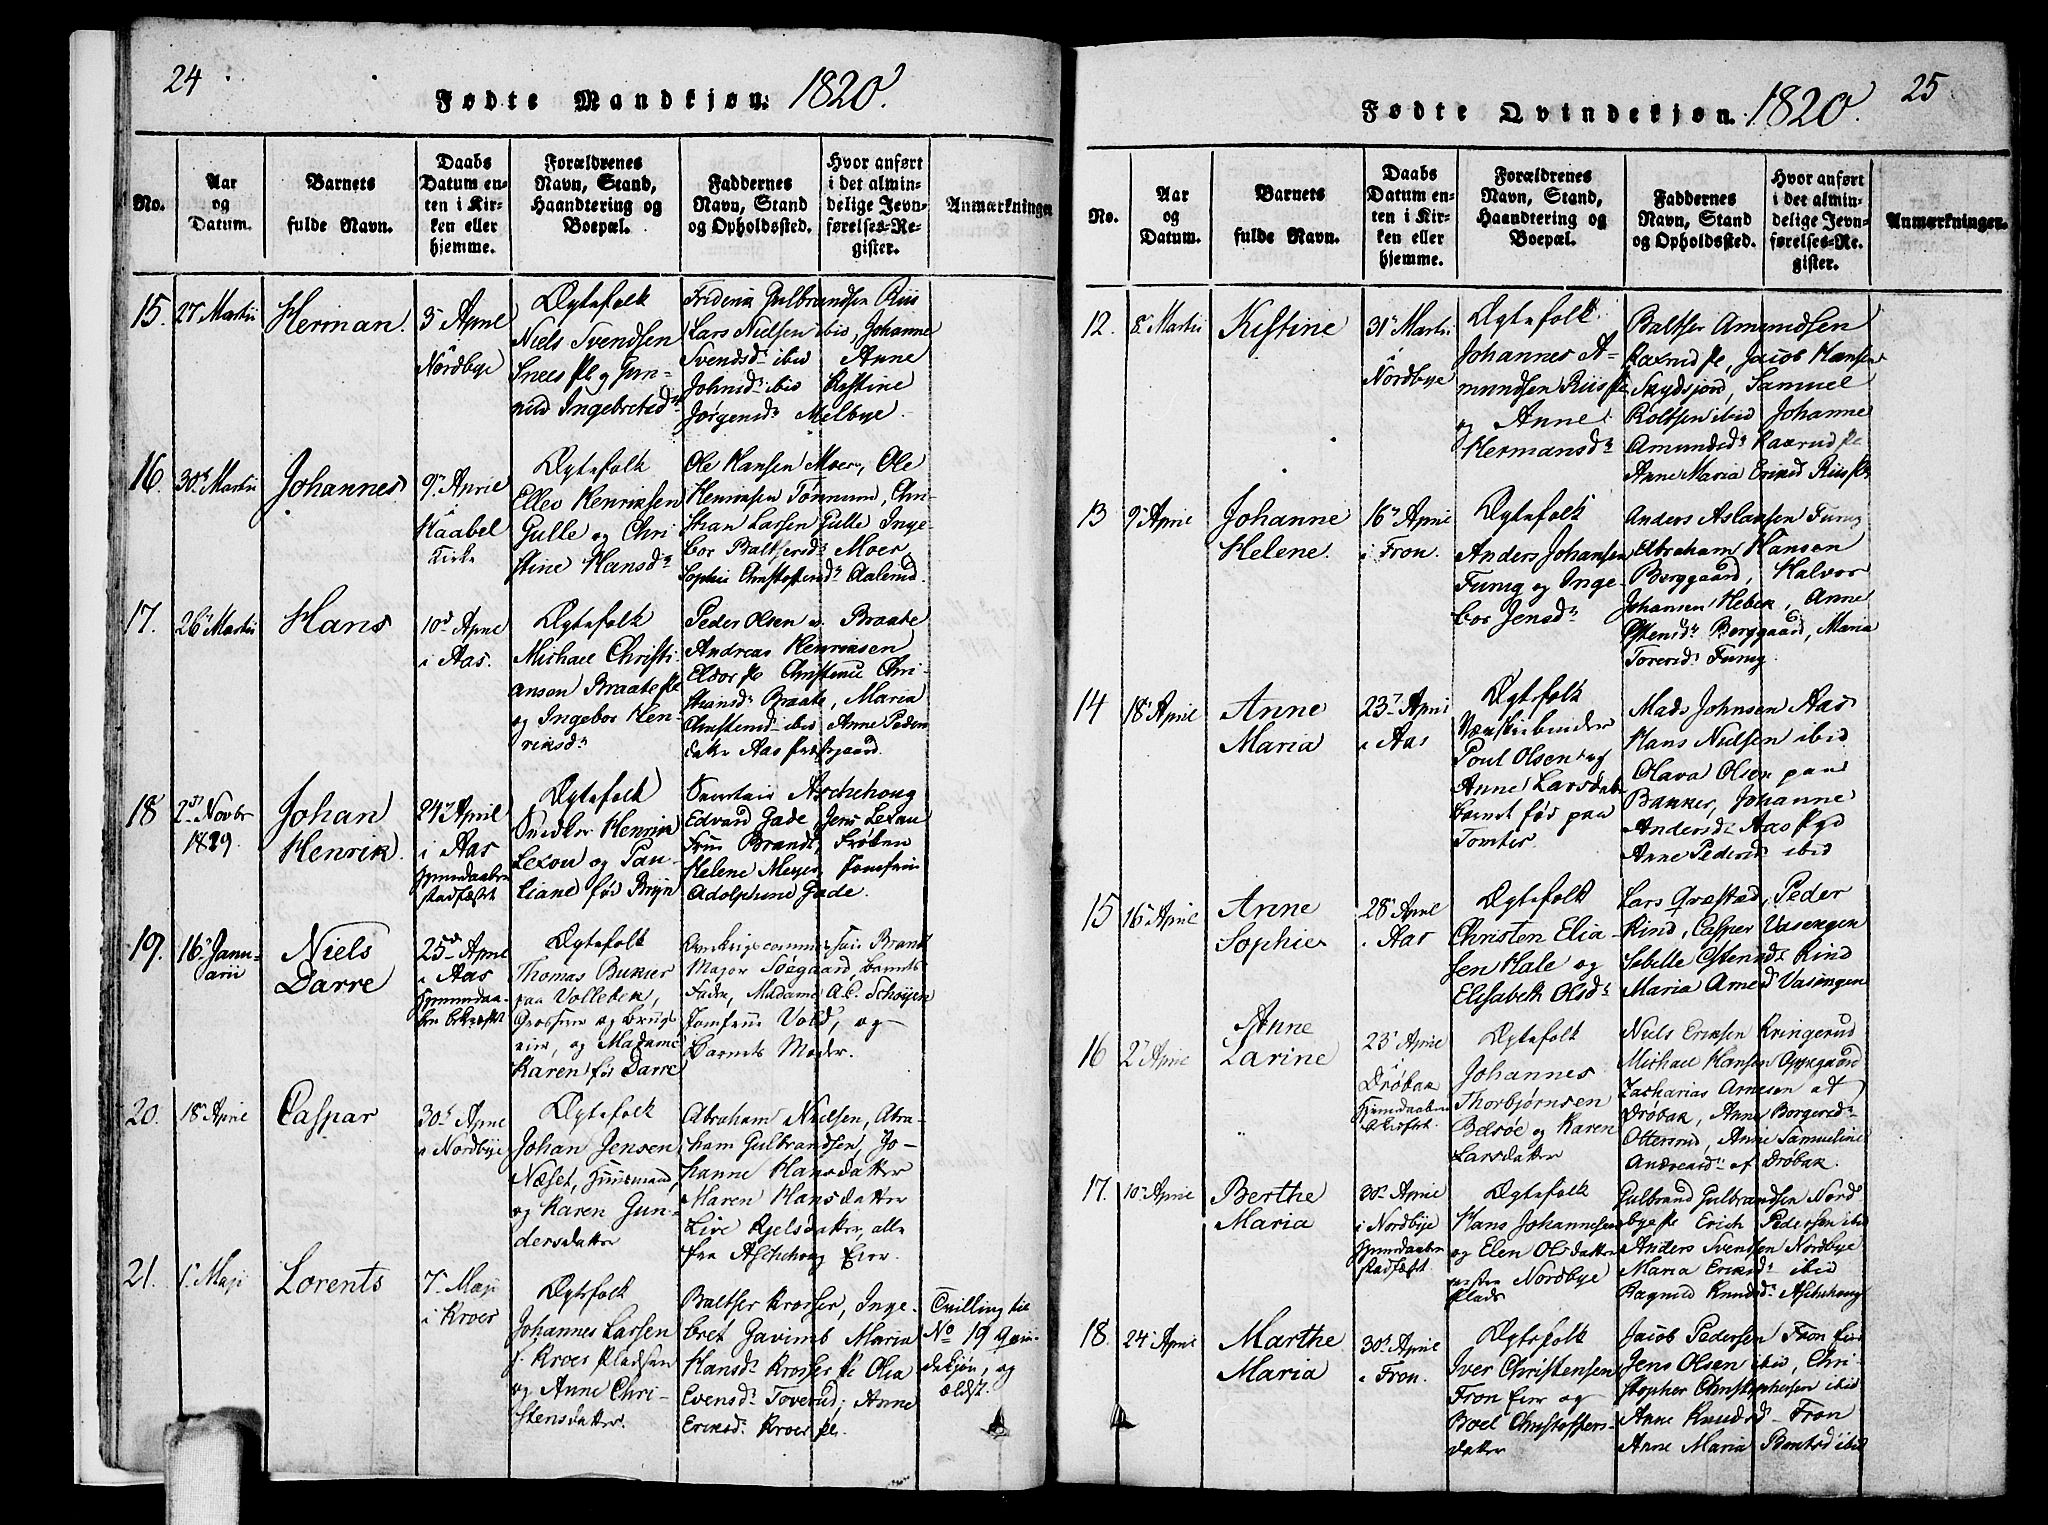 24
Fødte Mandkjøn. 1820.
No.
Aar
og
Datum.
Barnets
fulde Navn.
Daabs
Datum en-
ten i Kir-
ken eller
hjemme.
Forældrenes
Navn, Stand,
Haandtering og
Boepæl.
Faddernes
Navn, Stand
og Opholdssted.
Hvor anført
i det almin-
delige Jevn-
førelses-Re-
gister.
Anmærkninger
15.
27 Martii
Herman.
3 April
Nordbye
Ægtefolk
Niels Svendsen
Snees Pl og Gun-
nild Ingebretsd
Friderik Gulbrandsen Riis
Lars Nielsen ibid, Johanne
Svendsd ibid Anne
Johnsd ibid Kistine
Jørgensd Melbye.
16.
30 Martii
Johannes
9 April
i
Kaabel
Kirke
Ægtefolk
Ellev Henriksen
Gulle og Chri
stine Hansd
Ole Hansen Moer, Ole
Henriksen Tønnum, Chri-
stian Larsen Gulle Inge-
bor Baltsersd Moer,
Sophie Christophersd Aalerud.
17.
26 Martii
Hans
10 April
i Aas.
Ægtefolk
Michael Christi
ansen Braate Pl
og Ingebor Hen-
riksd
Peder Olsen Braate
Andreas Henriksen
Eldor Pl Christine Chri-
stiansd Braate, Maria
Christensd ibid Anne Peders
datter Aas Præstgaard.
18
2 Novbr
1819.
Johan
Henrik.
24 April
i Aas
Hjemmdaaben
stadfæstet
Ægtefolk
Snedker Henrik
Lexou og Pau-
liane fød Bryn
Aschehoug
Edvard Gade, Jens Lexau
Frue Brandt, Frøken
Helene Meyer, Jomfrue
Adolphine Gade.
19.
16 Janu-
arii
Niels
Darre
25 April
i Aas
Hjemmdaa-
ben bekræftet
Ægtefolk
Thomas Bukier
paa Vollebek,
og Brugs
eier, og Madame
Karen fød Darre
Brandt
Major Søegaard, Barnets
Fader, Madame A.C. Schøyen
Jomfrue Vold, og
Barnets Moder.
20.
18 April
Caspar
30 April
i Nordbye
Ægtefolk
Johan Jensen
Næset, Huusmand,
og Karen Gun-
dersdatter
Abraham Nielsen, Abra-
ham Gulbrandsen, Jo-
hanne Hansdatter
Maren Hansdatter
Live Kjelsdatter, alle
fra Aschehoug Eier.
21.
1 Maji
Lorents
7 Maji
i Kroer
Ægtefolk
Johannes Larsen
Kroer Pladsen
og Anne Chri-
stensdatter.
Baltser Krosser, Inge-
bret Gavimb Maria
Hansd Krosser Pl Olia
Evensd Toverud, Anne
Eriksd Kroer Pl.
Tvilling til
No 19 Qvin-
dekjøn, og
ældst.
25
Fødte Qvindekjøn. 1820.
No.
Aar
og
Datum.
Barnets
fulde Navn.
Daabs
Datum en-
ten i Kir-
ken eller
hjemme.
Forældrenes
Navn, Stand,
Haandtering og
Boepæl.
Faddernes
Navn, Stand
og Opholdssted.
Hvor anført
i det almin-
delige Jevn-
førelses-Re-
gister.
Anmærkninger.
12.
8 Martii
Kistine
31 Martii
Nordbye
Ægtefolk
Johannes A-
mundsen Riis Pl
og Anne
Hermansd
Baltser Amundsen
Kaxrud Pl, Jacob Hansen
Skydsjord, Samuel
Roltsen ibid Johanne
Amundsd Kaxrud Pl
Anne Maria Eriksd Riis Pl
13
9 April
Johanne
Helene.
16 April
i Fron.
Ægtefolk
Anders Johansen
Furug og Inge-
bor Jensd
Anders Aslaksen Furug
Abraham Hansen
Berggaard, Halvor
Johansen Hebek, Anne
Ostensd Berggaard, Maria
Toresd Furug.
14
18 April
Anne
Maria
23 April
i Aas
Ægtefolk
Poul Olsen og
Anne Larsdatter
barnet fød paa
Tomter.
Mads Johnsen Aas
Hans Nielsen ibid
Olava Olsen paa
Bakker, Johanne
Andersd Aas
Anne Pedersd ibid
15
16 April
Anne
Sophie
28 April
i Aas
Ægtefolk
Christen Elia-
sen Hale og
Elisabeth Olsd
Lars Qvæstad, Peder
Rind, Casper Vasengen
Sebille Ostensd Rind
Maria Arnesd Vasengen
16
2 April
Anne
Larine
23 April
Drøbak
Hjemmdaaben
bekræftet.
Ægtefolk
Johannes
Thorbjørnsen
Belsøe og Karen
Larsdatter
Niels Eriksen Kringerud
Michael Hansen Oppegaard
Zacharias Arnesen af
Drøbak, Anne Borgersd
Ottersrud, Anne Samueline
Andreasd af Drøbak.
17.
10 April
Berthe
Maria
30 April
i Nordbye
Hjemmdaaben
stadfæst
Ægtefolk
Hans Johannesen
og Elen Olsdatter
Nordbye
Plads
Gulbrand Gulbrandsen Nord
bye Pl Erich Pedersen ibid
Anders Svendsen Nordbye
Maria Eriksd ibid
Ragnild Knudsd Aschehoug
18.
24 April
Marthe
Maria
30 April
i Fron.
Ægtefolk
Iver Christensen
Fron Eier og
Boel Christoffers-
datter
Jacob Pedersen Fron Eier
Jens Olsen ibid, Chri-
stopher Christophersen ibid
Anne Knudsd Fron
Anne Maria Berntsd ibid